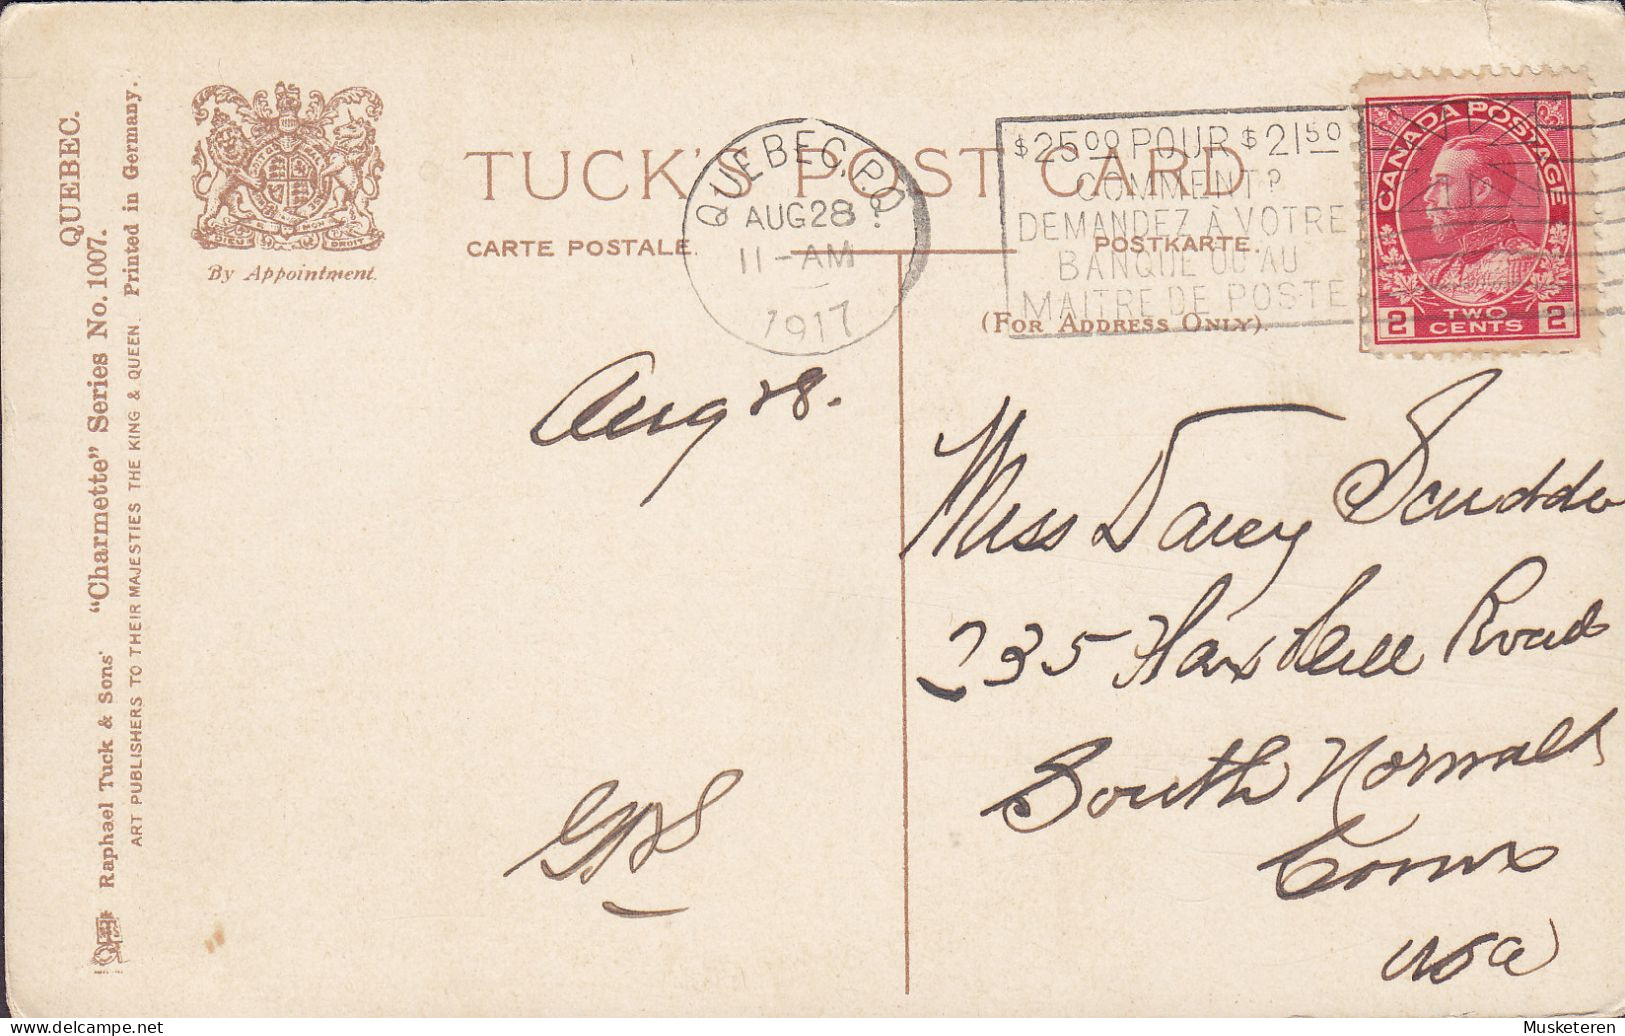 QUEBEC.
Raphael Tuck & Sons' "Charmette" Series No. 1007.
ART PUBLISHERS TO THEIR MAJESTIES THE KING & QUEEN. Printed in Germany.
DIEU ET MON DROIT
By Appointment.
TUCK'S POST CARD
CARTE POSTALE.
POSTKARTE.
(FOR ADDRESS ONLY).
QUEBEC, P.Q.
AUG 28
11 - AM
1917
$25.00 POUR $21.50
COMMENT?
DEMANDEZ À VOTRE
BANQUE OU AU
MAITRE DE POSTE
CANADA POSTAGE
2 TWO CENTS 2
Aug 28.
Miss Darcy
235 Road
South Norwalk
Conn
USA
Musketeren